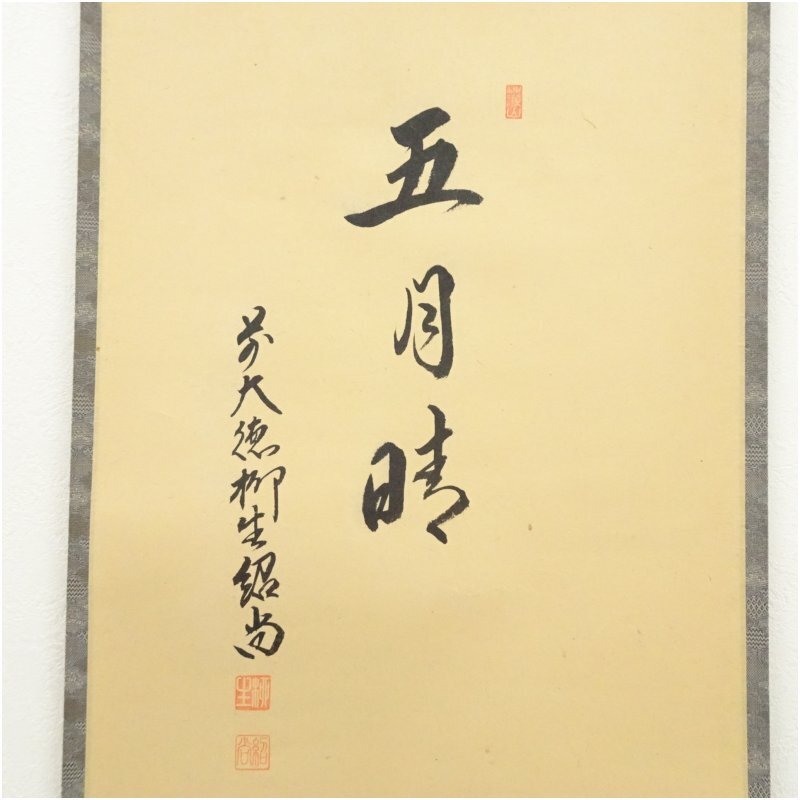 五月晴
前大徳柳生紹尚
柳生
紹尚